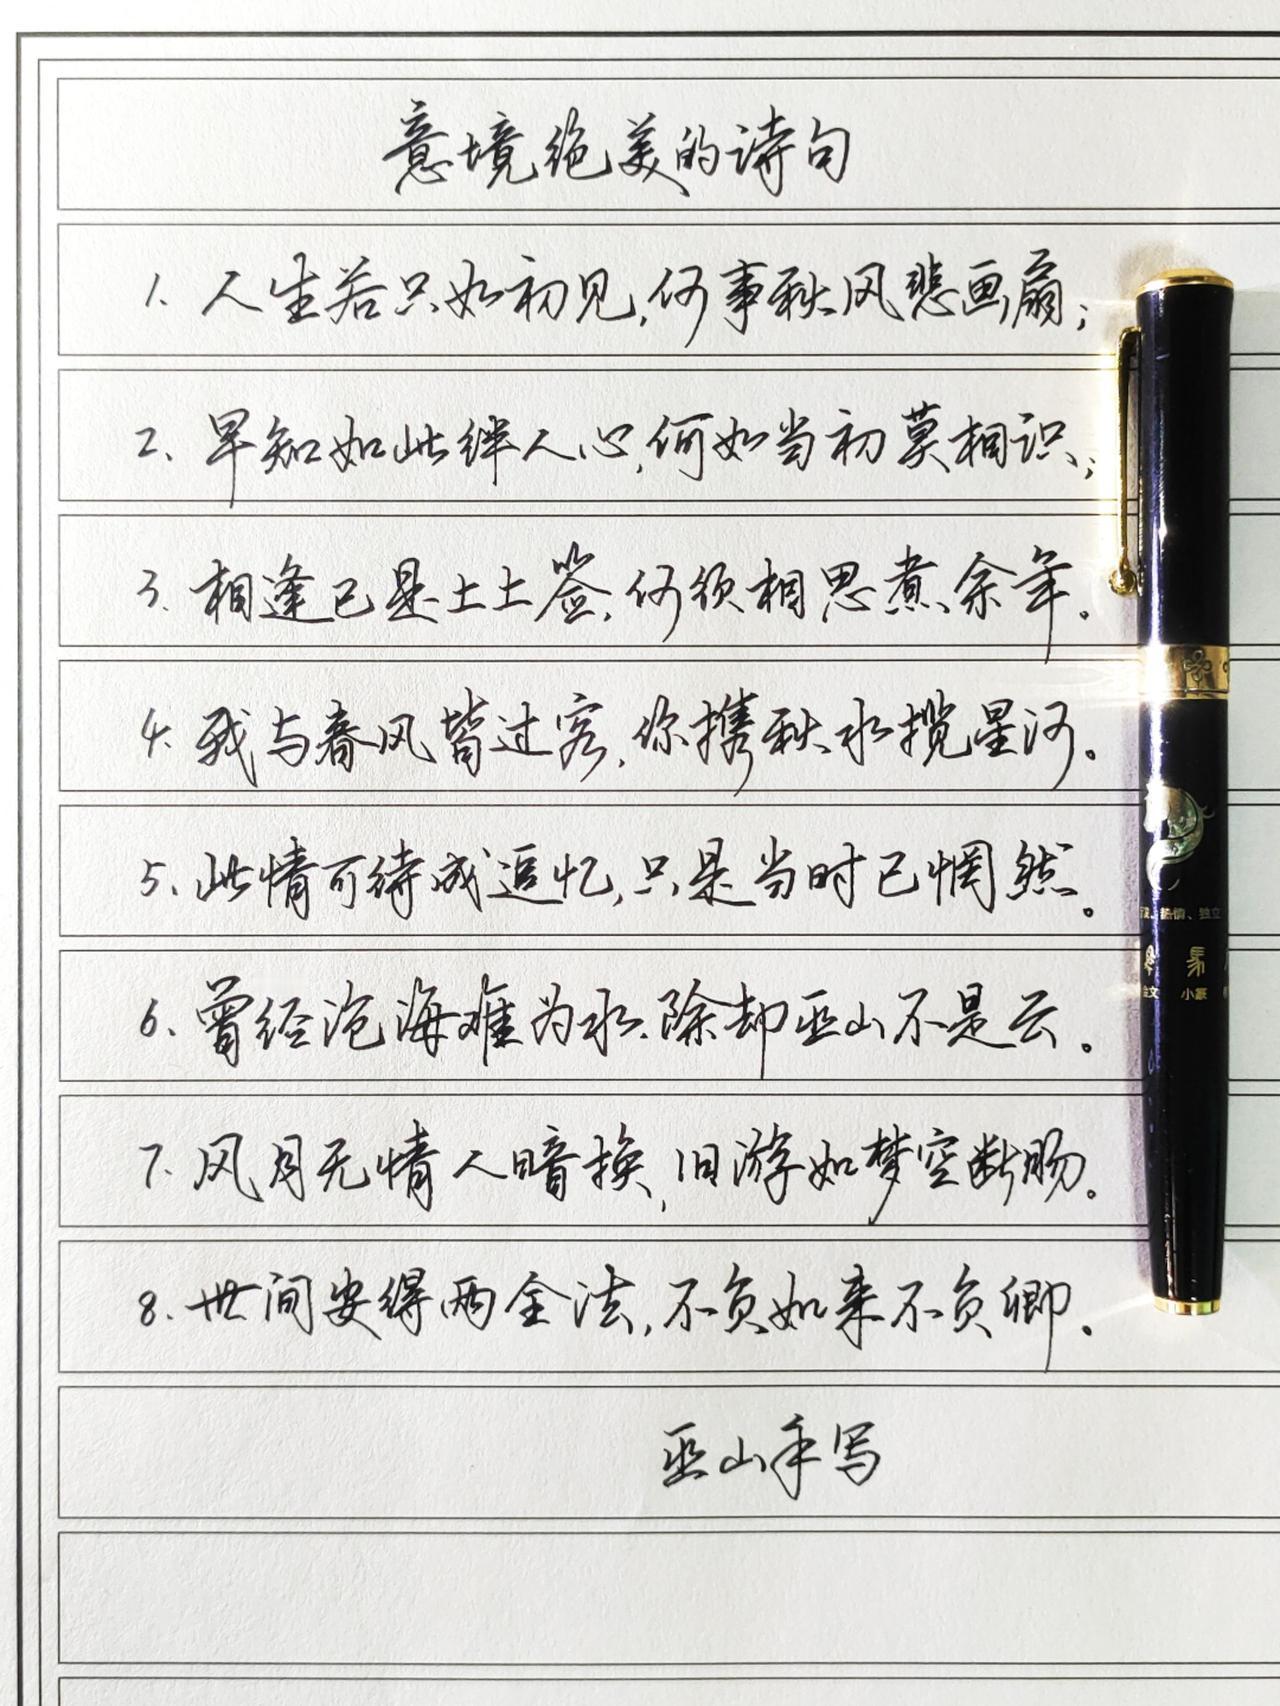 意境绝美的诗句
1. 人生若只如初见,何事秋风悲画扇;
2. 早知如此绊人心,何如当初莫相识;
3. 相逢已是上上签,何须相思煮余年。
4. 我与春风皆过客,你携秋水揽星河。
5. 此情可待成追忆,只是当时已惘然。
6. 曾经沧海难为水,除却巫山不是云。
7. 风月无情人暗换,旧游如梦空断肠。
8. 世间安得两全法,不负如来不负卿。
巫山手写
热情、独立
小篆